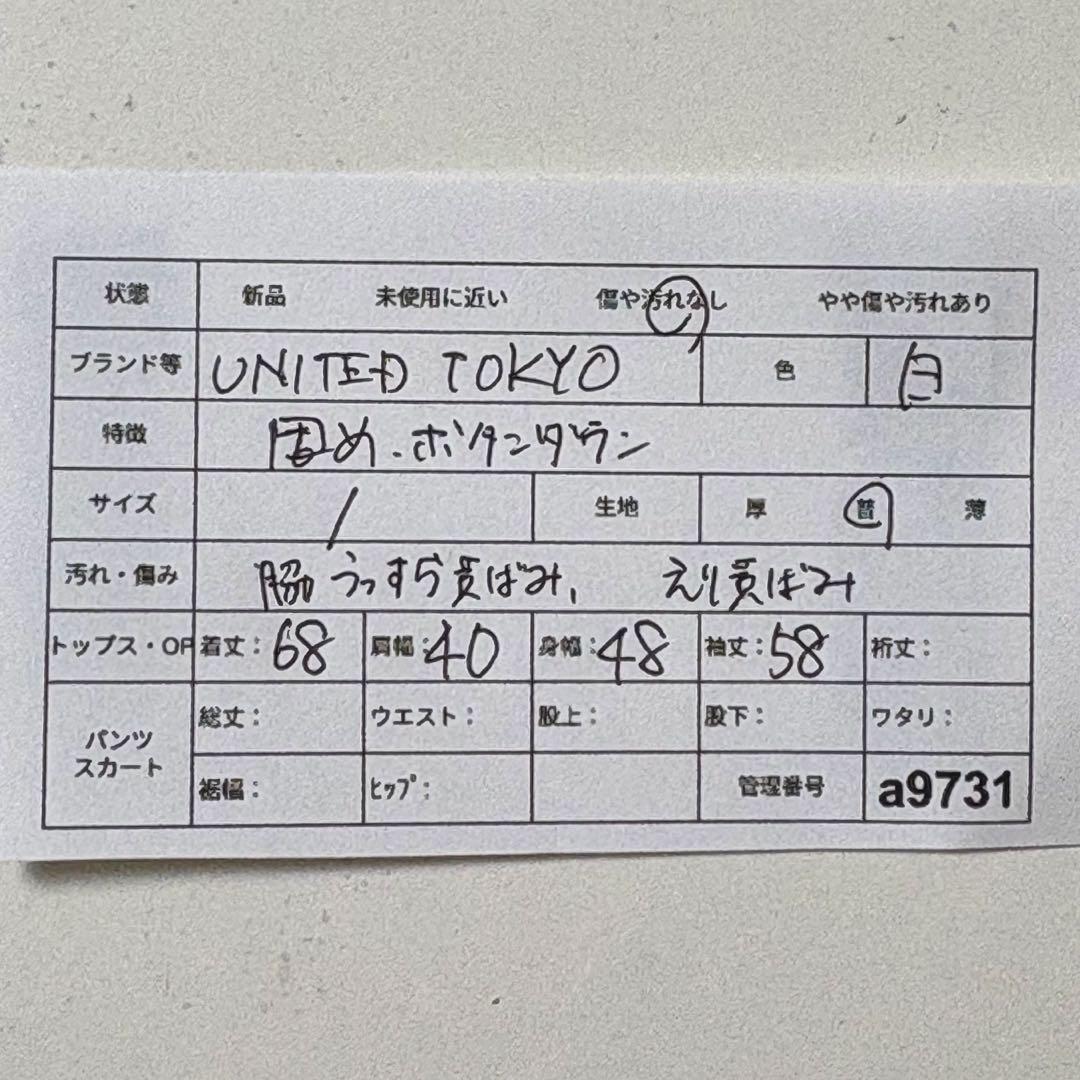 状態 新品 未使用に近い 傷や汚れなし やや傷や汚れあり
ブランド等 UNITED TOKYO 色 白
特徴 固め、ボタンダウン
サイズ / 生地 厚 普 薄
汚れ・傷み 脇うっすら黄ばみ、 えり黄ばみ
トップス・OP 着丈: 68 肩幅: 40 身幅: 48 袖丈: 58 裄丈:
パンツ スカート 総丈: ウエスト: 股上: 股下: ワタリ:
裾幅: ヒップ: 管理番号 a9731